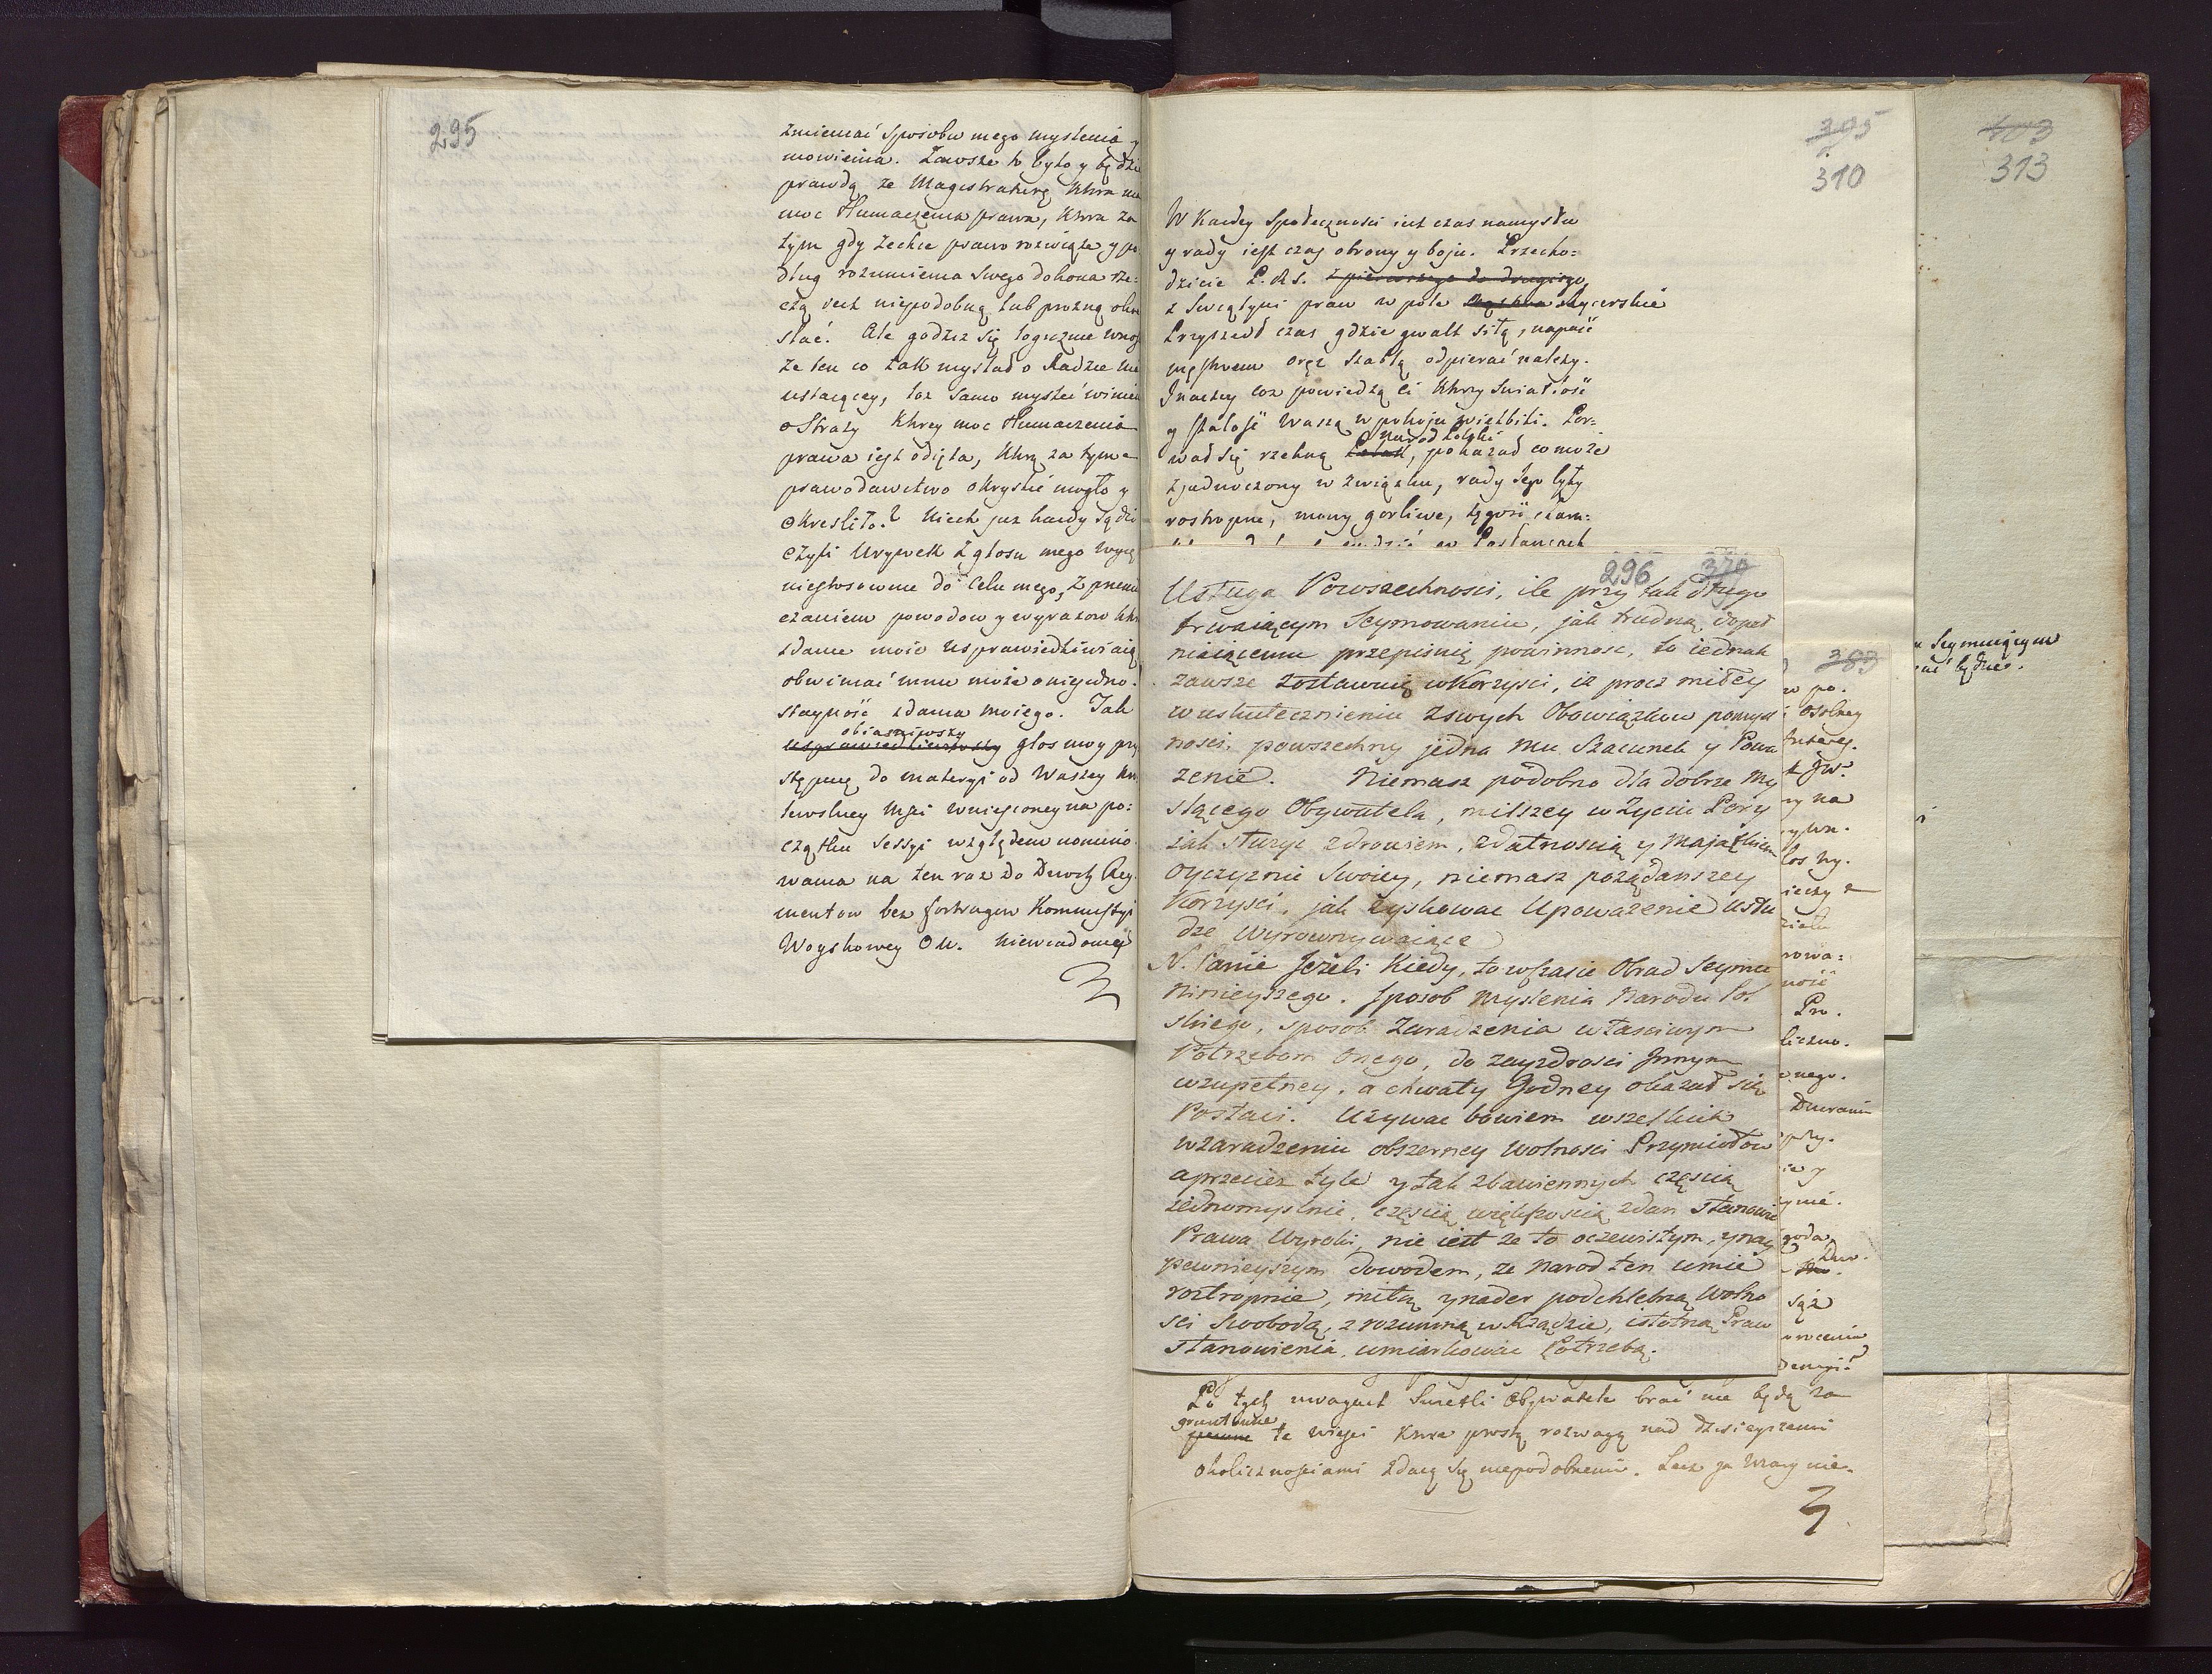 295
zmieniać sposobu mego myslenia y
mowienia. Zawsze to było y będzie
prawdą ze Magistraturę ktora ma
moc tłumaczenia prawa, ktora za
tym gdy zechce prawo rozwiąże y po
dług rozumienia swego dokona rze=
czą iest niepodobną lub prozną okre
slać. Ale godzisz się logicznie wnosi
że ten co tak myslał o Radzie nie
ustaiącey, toz samo mysleć winien
o Strazy ktorey moc tłumaczenia
prawa iest odięta, ktorą za tym
prawodawctwo okryslić mogło y
okresliło? Niech juz kazdy sądzi
czyli urywek z głosu mego
niestosownie do celu mego, z
czaniem powodow y wyrazow
zdanie moie usprawiedliwiaią
obwiniać mnie może o nieiedno=
stayność zdania moiego. Jak
obiasniwszy
usprawiedliwiwszy głos moy przy
stępuię do materyi od Waszey Kro
lewskiey Mści wniesioney na po=
czątku Sessyi względem nomino
wania na ten raz do Dwoch Rey
mentow bez fortragow Kommissyi
Woyskowey O. N. Niewiadomość
395
310
W Kazdey społeczności iest czas namysłu
y rady iest czas obrony y boju. Przecho=
dzicie P. R. S. z pierwszego do drugiego,
z swiątyni praw w pole Rycerskie
Przyszedł czas gdzie gwałt siłą, napaść
męstwem oręż szablą odpierać należy.
Inaczey coz powiedzą ci ktorzy swiatłość
y stałość waszą w pokoju wielbili. Por=
narod Polski
wał się rzekną Polak, pokazał co może
zjednoczony w związku, rady Jego były
roztropne, mowy gorliwe,
w Postawach
296 370
Usługa Powszechnosci, ile przy tak długo
trwaiącym Seymowaniu, jak trudną dopeł
niaiącemu przepisuię powinnosc, to iednak
zawsze zostawuię w korzysci, iz procz miłey
w uskutecznieniu zswych Obowiązkow pomysl
nosci, powszechny jedna mu szacunek y Powa
zenie. Niemasz podobno dla dobrze my
slącego Obywatela, milszey w Zyciu Pory
jak służyc zdrowiem, zdatnoscią y Maiątkiem
Oyczyznie Swoiey, niemasz pożądanszey
Korzysci, jak zyskowac Upoważenie usłu
dze wyrownywaiące
N. Panie Jeżeli Kiedy, to w czasie Obrad Seymu
Ninieyszego. sposob myslenia Narodu Pol
skiego, sposob Zaradzenia własciwym
Potrzebom onego, do zayzdrosci Jnnym
w zupełney, a chwały Godney okazał się
Postaci. Używac bowiem wszelkich
w zaradzeniu obszerney wolnosci Przymiotow
a przeciez tyle y tak zbawiennych częscią
iednomyslnie, częscią większoscią zdan stanowic
Prawa Wyroki, nie iest ze to oczewistym, y nay
pewnieyszym dowodem, ze Narod ten umie
roztropnie, miłą y nader podchlebną wolno
sci swobodą, z rozumną w Rządzie, istotną Praw
stanowienia, umiarkowac Potrzebą.
Po tych uwagach swiatli Obywatele brać nie będą za
gruntowne
pewne te wiesci ktore prostą rozwagą nad dzisieyszemi
okolicznosciami zdaią się niepodobnemi. Lecz ja wracy nie=
383
w po.
osobney
Interes.
ny na
los ny.
nowa=
ność
Pro.
liczno.
wnego.
Dwiema
ynie.
403
313
Seymuiącym
będzie.